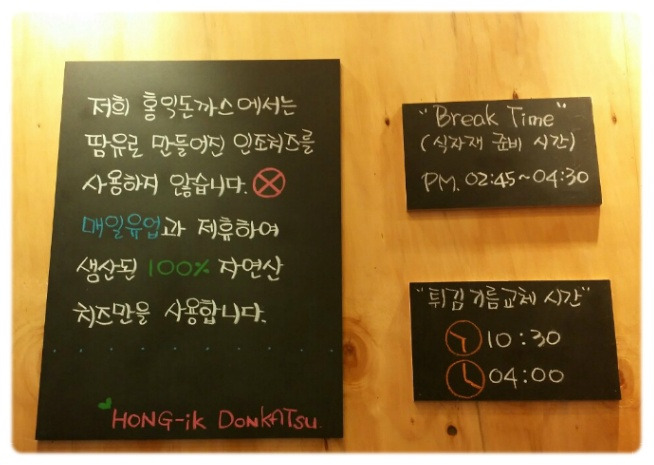 저희 홍익돈까스에서는
팜유로 만들어진 인조치즈를
사용하지 않습니다.
매일유업과 제휴하여
생산된 100% 자연산
치즈만을 사용합니다.
HONG-ik DONKATSu.
"Break Time"
(식자재 준비 시간)
PM. 02:45~04:30
"튀김기름교체 시간"
10:30
04:00